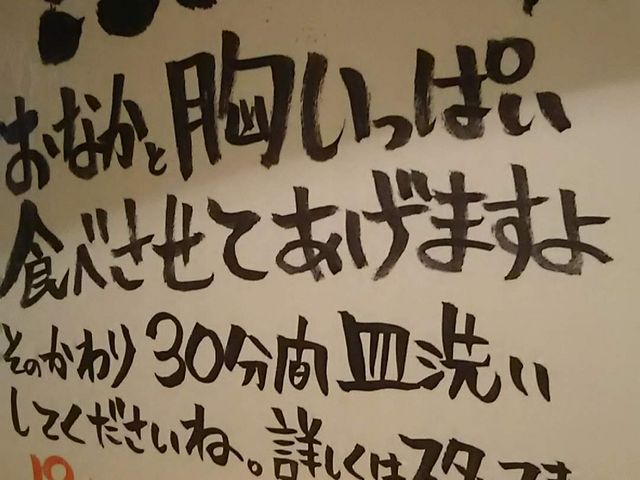 おなかと胸いっぱい
食べさせてあげますよ
そのかわり30分間皿洗い
してくださいね。詳しくはスタッフま